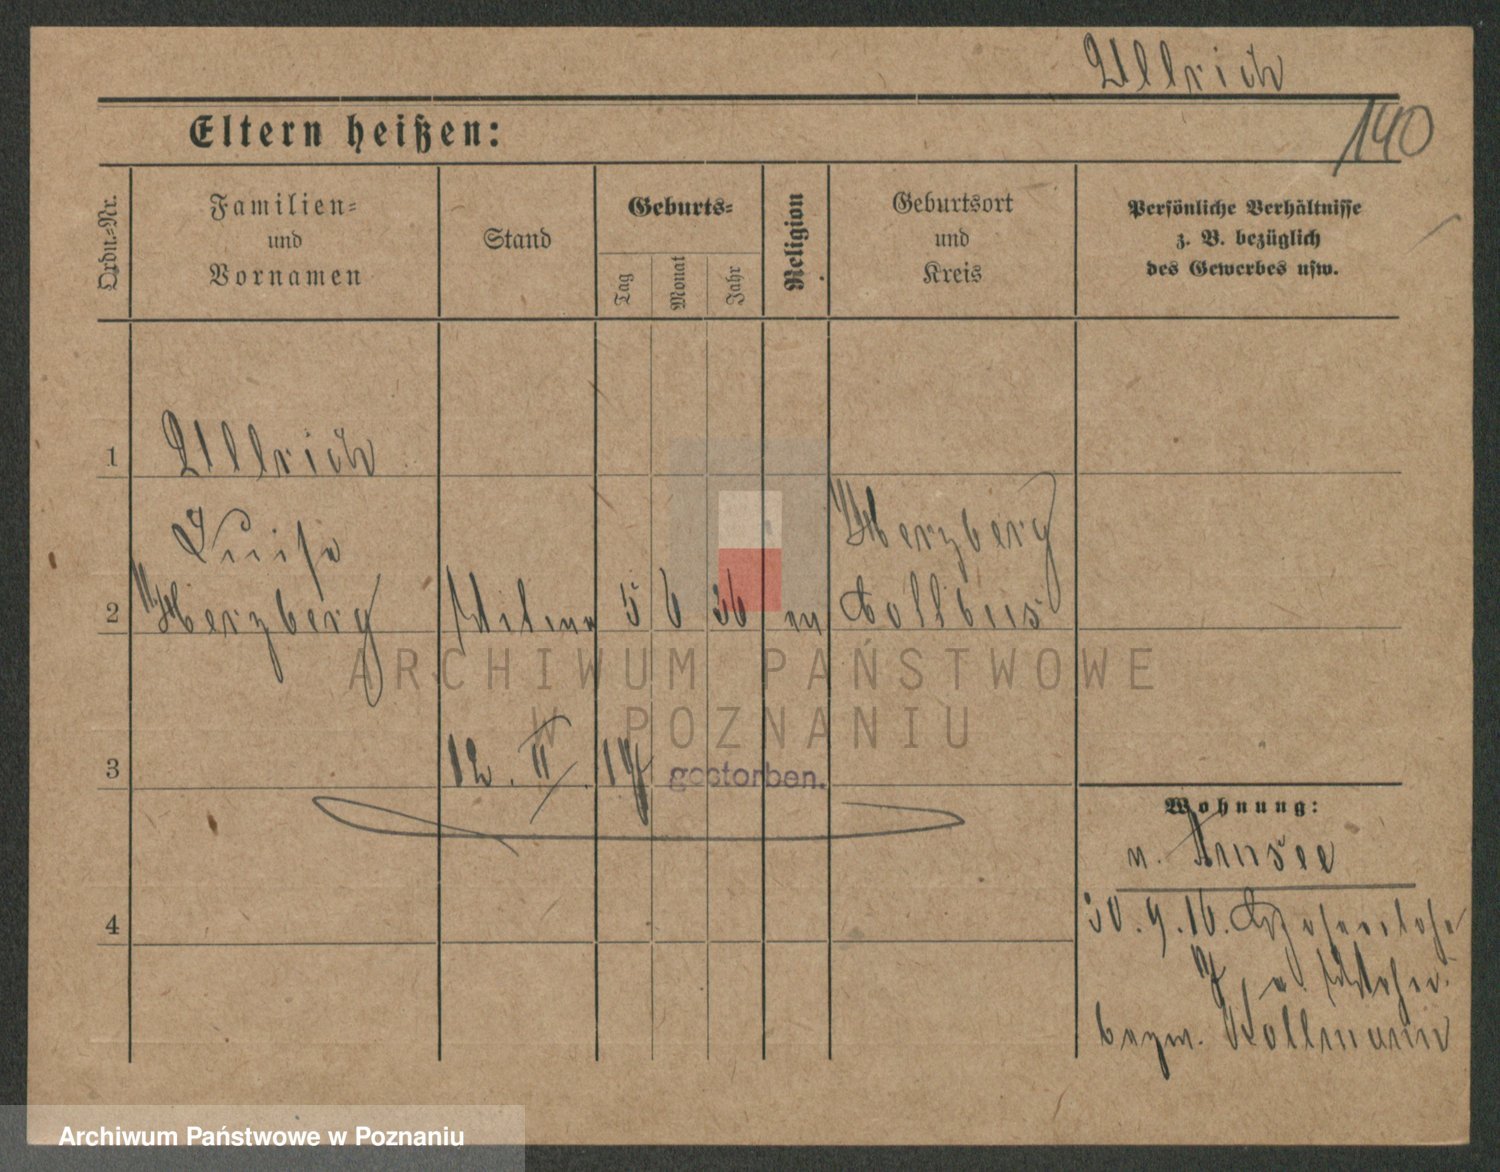 Ullrich
140
Eltern heißen:
Ordn.-Nr.
Familien-
und
Vornamen
Stand
Geburts-
Tag
Monat
Jahr
Religion
Geburtsort
und
Kreis
Persönliche Verhältnisse
z. B. bezüglich
des Gewerbes usw.
1 Ullrich
Luise
Herzberg
2 Herzberg Witwe 5 6 36 ev Cottbus
ARCHIWUM PAŃSTWOWE
W POZNANIU
3 12. II. 17 gestorben.
Wohnung:
4
30. 9. 16.
7
bezw.
Archiwum Państwowe w Poznaniu